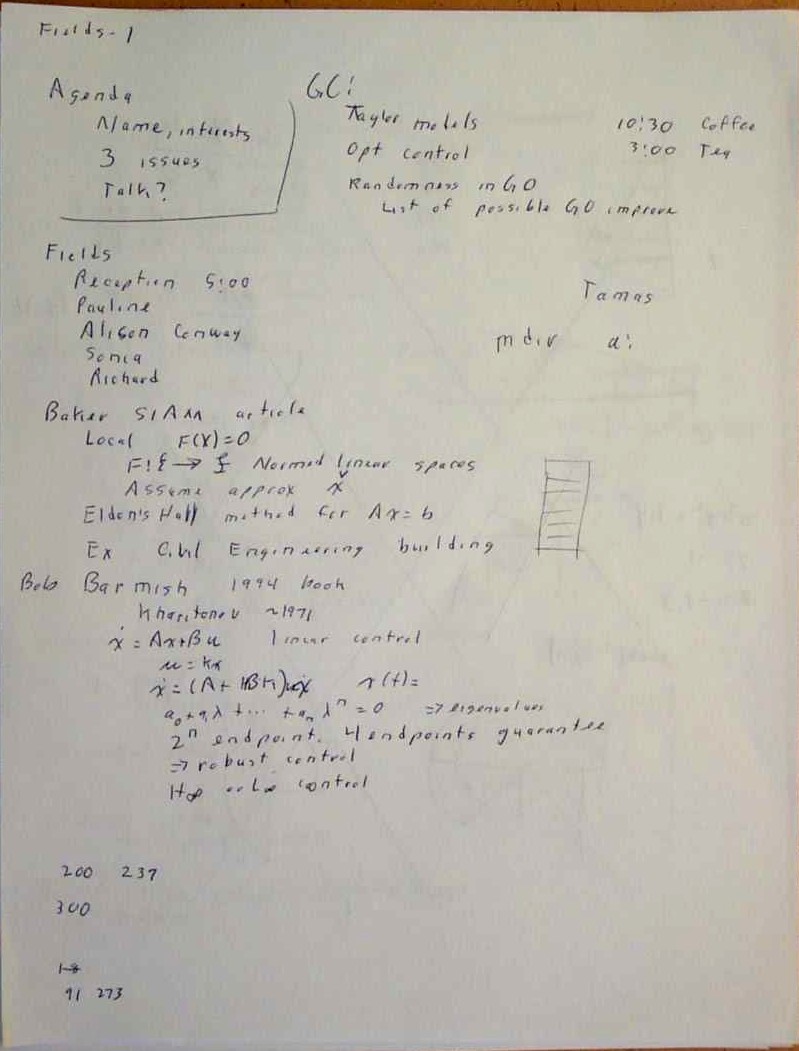 Fields-1
Agenda
Name, interests
3 issues
Talk?
GC:
Taylor models
Opt control
Randomness in GO
List of possible GO improve
10:30 Coffee
3:00 Tea
Fields
Reception 5:00
Pauline
Alison Conway
Sonia
Richard
Tamas
m div a:
Baker SIAM article
Local F(X)=0
Normed linear spaces
Assume approx x
Elden's Hall method for Ax=b
Ex Civil Engineering building
Bob Barmish 1994 book
Kharitonov ~1971
ẋ = Ax+Bu linear control
u = Kx
ẋ = (A+BK)x x(t)=
a₀+a₁λ+...+aₙλⁿ=0 ⇒ eigenvalues
2ⁿ endpoint. 4 endpoints guarantee
⇒ robust control
H∞ or L∞ control
200 237
300
91 273